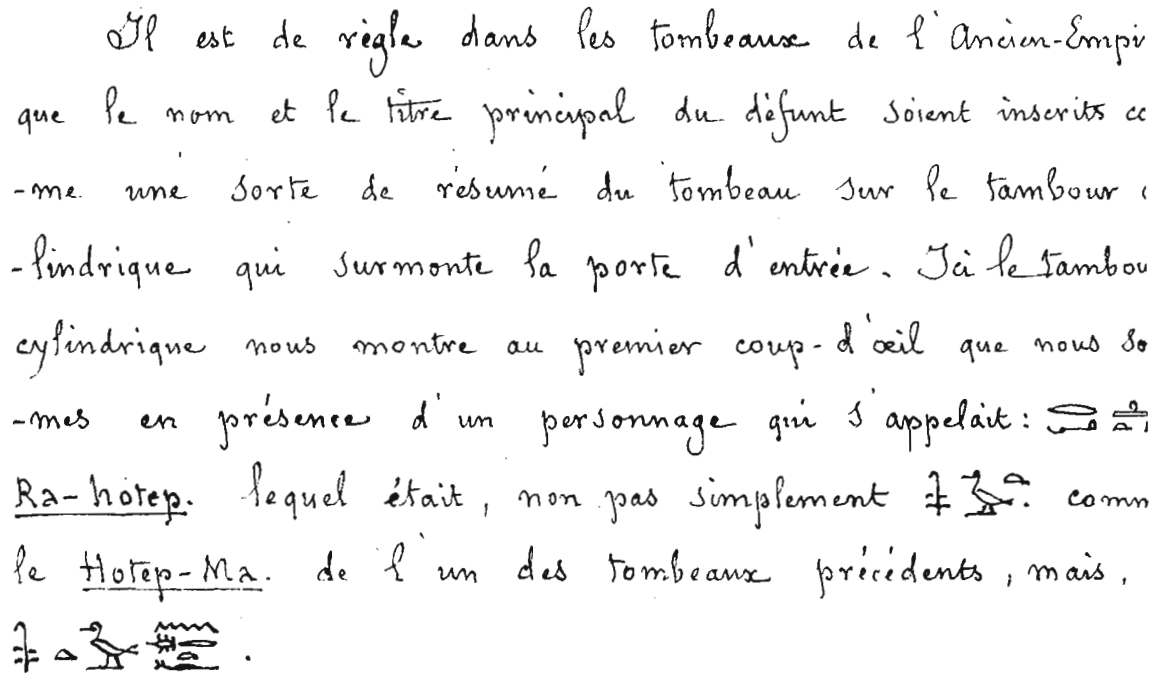 Il est de règle dans les tombeaux de l'Ancien-Empi
que le nom et le titre principal du défunt soient inscrits co
-me une sorte de résumé du tombeau sur le tambour c
-lindrique qui surmonte la porte d'entrée. Ici le tambou
cylindrique nous montre au premier coup-d'œil que nous so
-mes en présence d'un personnage qui s'appelait:
Ra-hotep. lequel était, non pas simplement comm
le Hotep-Ma. de l'un des tombeaux précédents, mais,